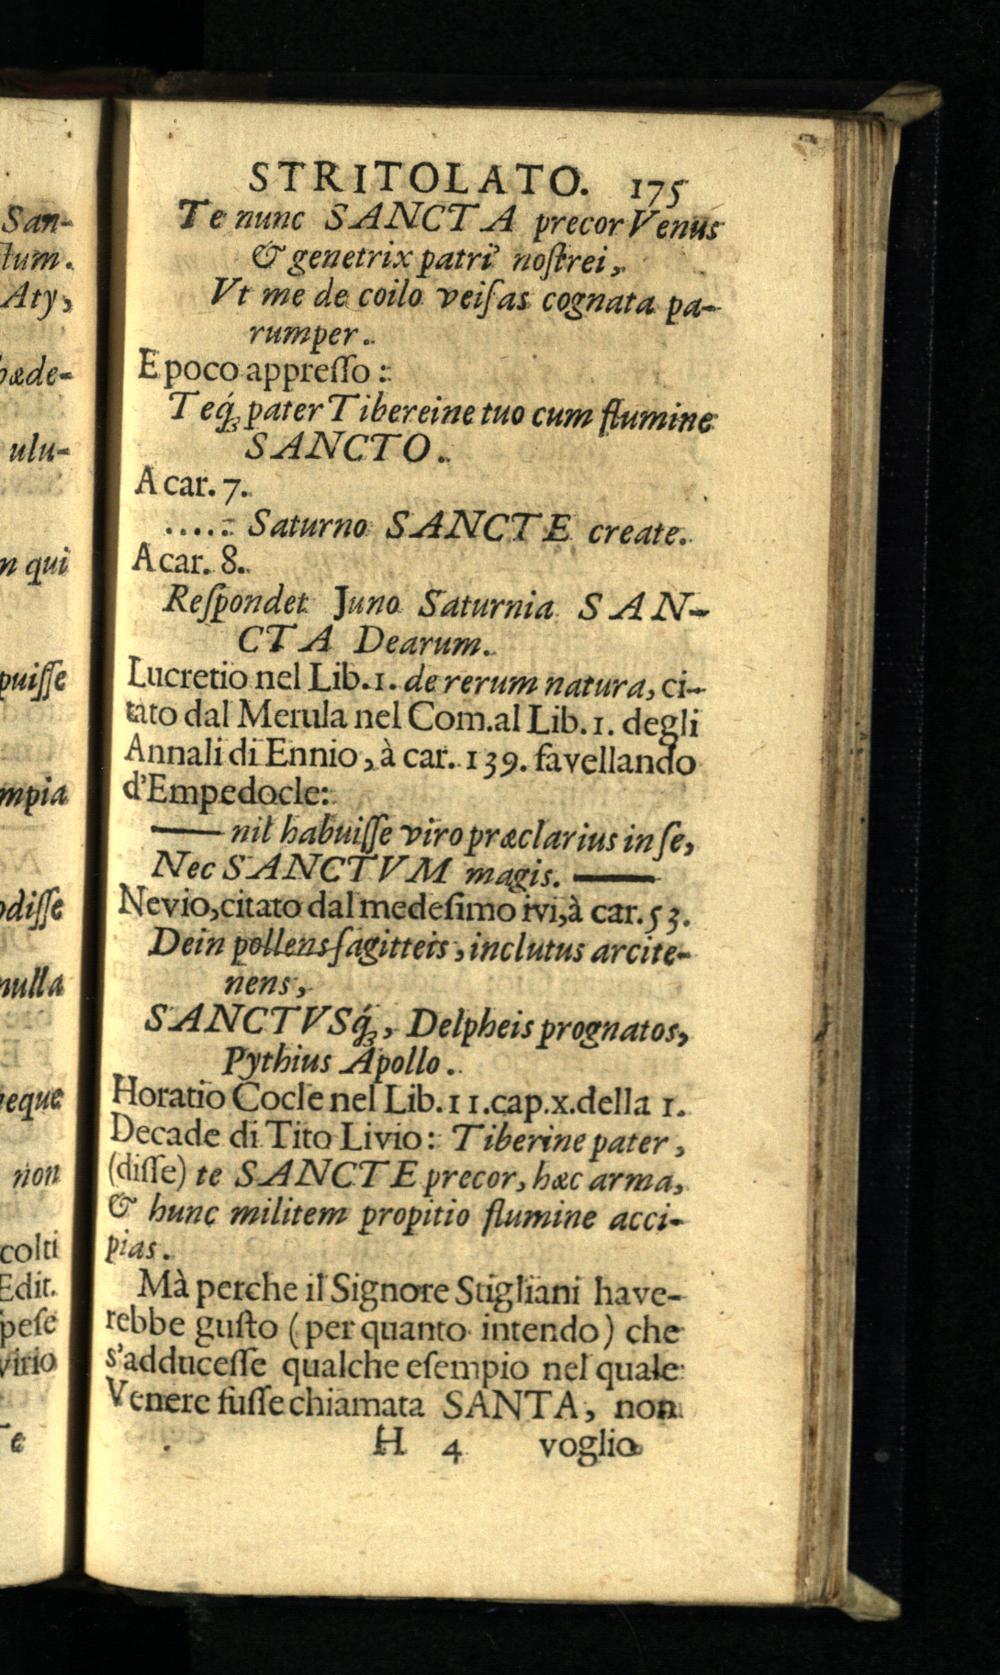 San-
ctum.
Aty,
hæde-
ulu-
n qui
puiſſe
mpia
odiſſe
nulla
neque
non
colti
Edit.
peſe
virio
Te
STRITOLATO. 175
Te nunc SANCTA precor Venus
& genetrix patri' noſtrei,
Vt me de coilo veiſas cognata pa-
rumper.
E poco appreſſo:
Teq́; pater Tibereine tuo cum flumine
SANCTO.
A car. 7.
..... Saturno SANCTE create.
A car. 8.
Reſpondet Juno Saturnia SAN-
CTA Dearum.
Lucretio nel Lib. 1. de rerum natura, ci-
tato dal Merula nel Com. al Lib. 1. degli
Annali di Ennio, à car. 139. favellando
d'Empedocle:
—— nil habuiſſe viro præclarius in ſe,
Nec SANCTVM magis. ——
Nevio, citato dal medeſimo ivi, à car. 53.
Dein pollens ſagitteis, inclutus arcite-
nens,
SANCTVSq́;, Delpheis prognatos,
Pythius Apollo.
Horatio Cocle nel Lib. 11. cap. x. della 1.
Decade di Tito Livio: Tiberine pater,
(diſſe) te SANCTE precor, hæc arma,
& hunc militem propitio flumine acci-
pias.
Mà perche il Signore Stigliani have-
rebbe guſto (per quanto intendo) che
s'adduceſſe qualche eſempio nel quale
Venere fuſſe chiamata SANTA, non
H 4 voglio